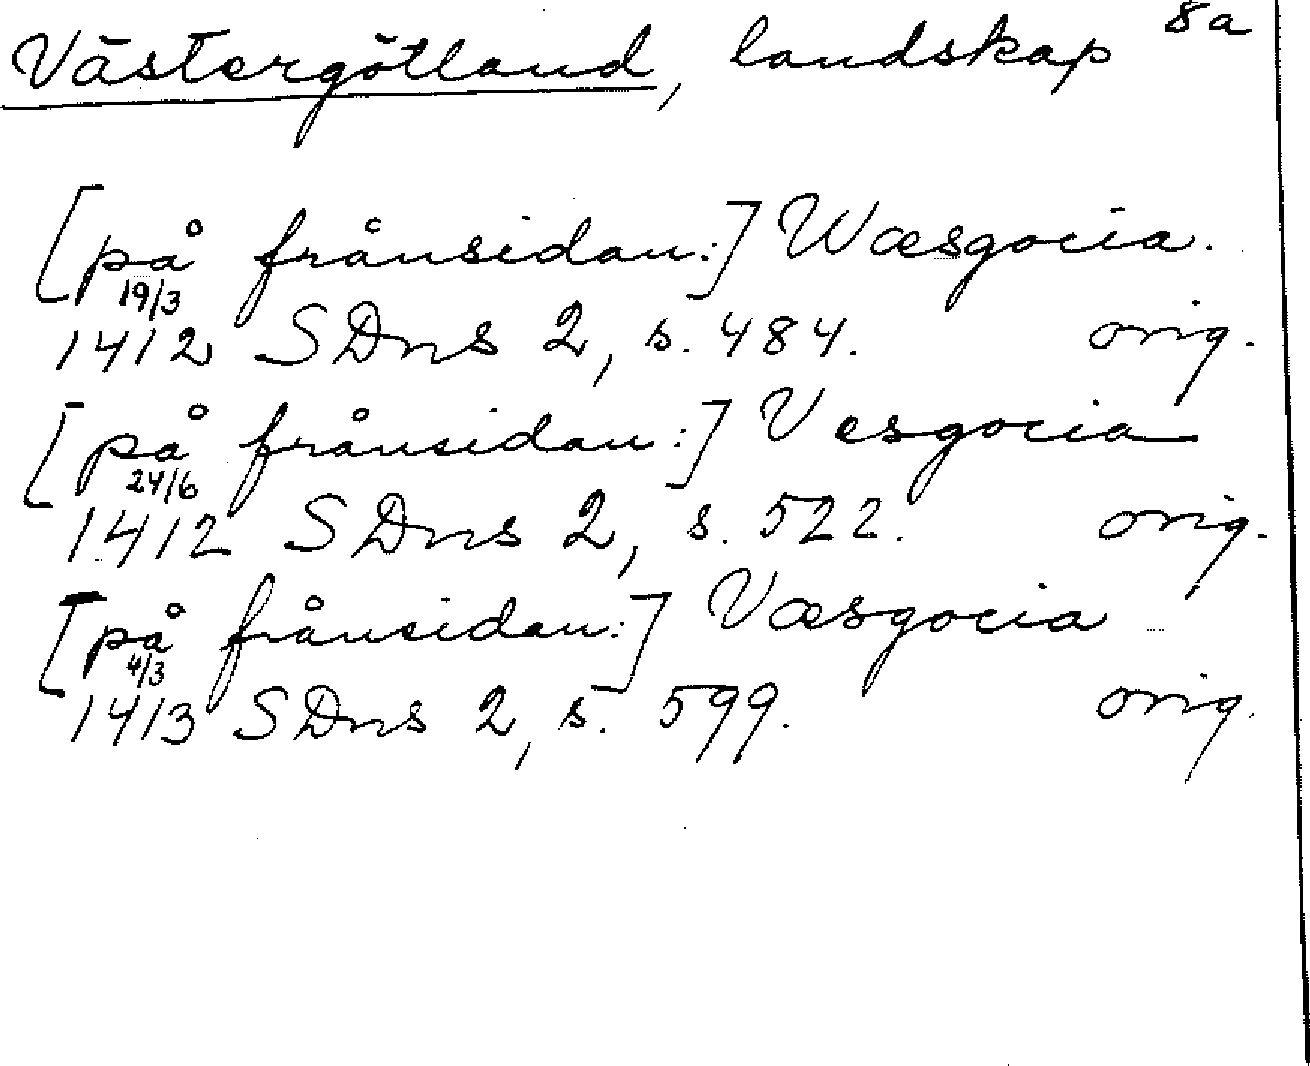 Västergötland, landskap 8a
[på frånsidan:] Wæsgocia.
19/3
1412 SDns 2, s. 484. orig.
[på frånsidan:] Vesgocia
24/6
1412 SDns 2, s. 522. orig.
[på frånsidan:] Væsgocia
4/3
1413 SDns 2, s. 599. orig.